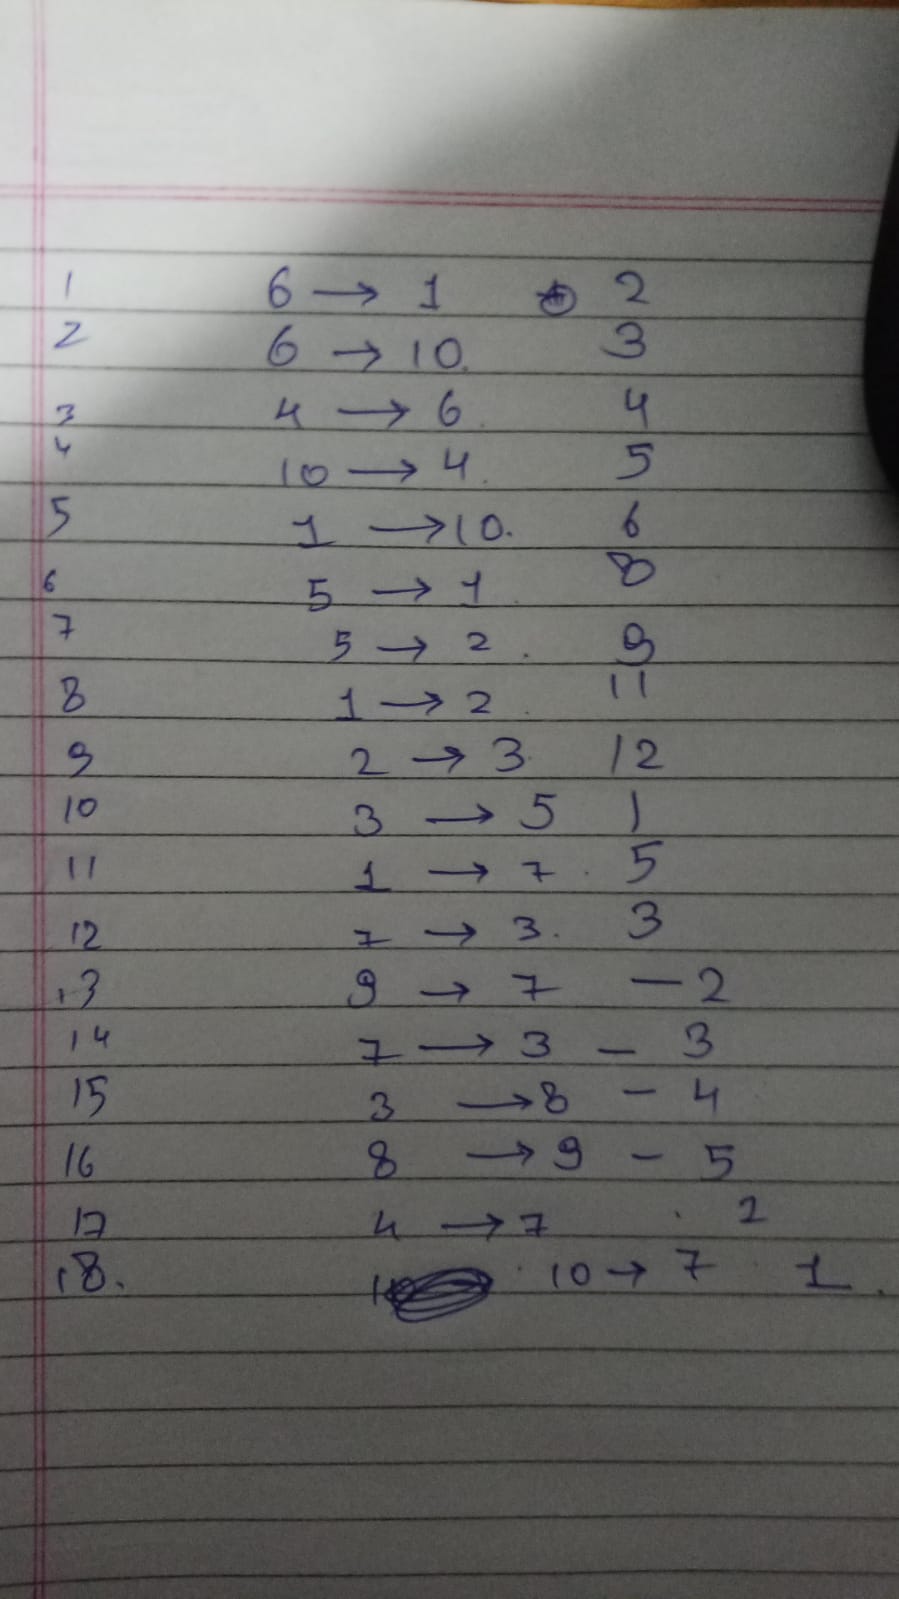 1 6 → 1 2
2 6 → 10. 3
3 4 → 6. 4
4 10 → 4. 5
5 1 → 10. 6
6 5 → 1. 8
7 5 → 2. 9
8 1 → 2. 11
9 2 → 3. 12
10 3 → 5 1
11 1 → 7. 5
12 7 → 3. 3
13 9 → 7 — 2
14 7 → 3 — 3
15 3 → 8 — 4
16 8 → 9 — 5
17 4 → 7 . 2
18. 10 → 7 1.